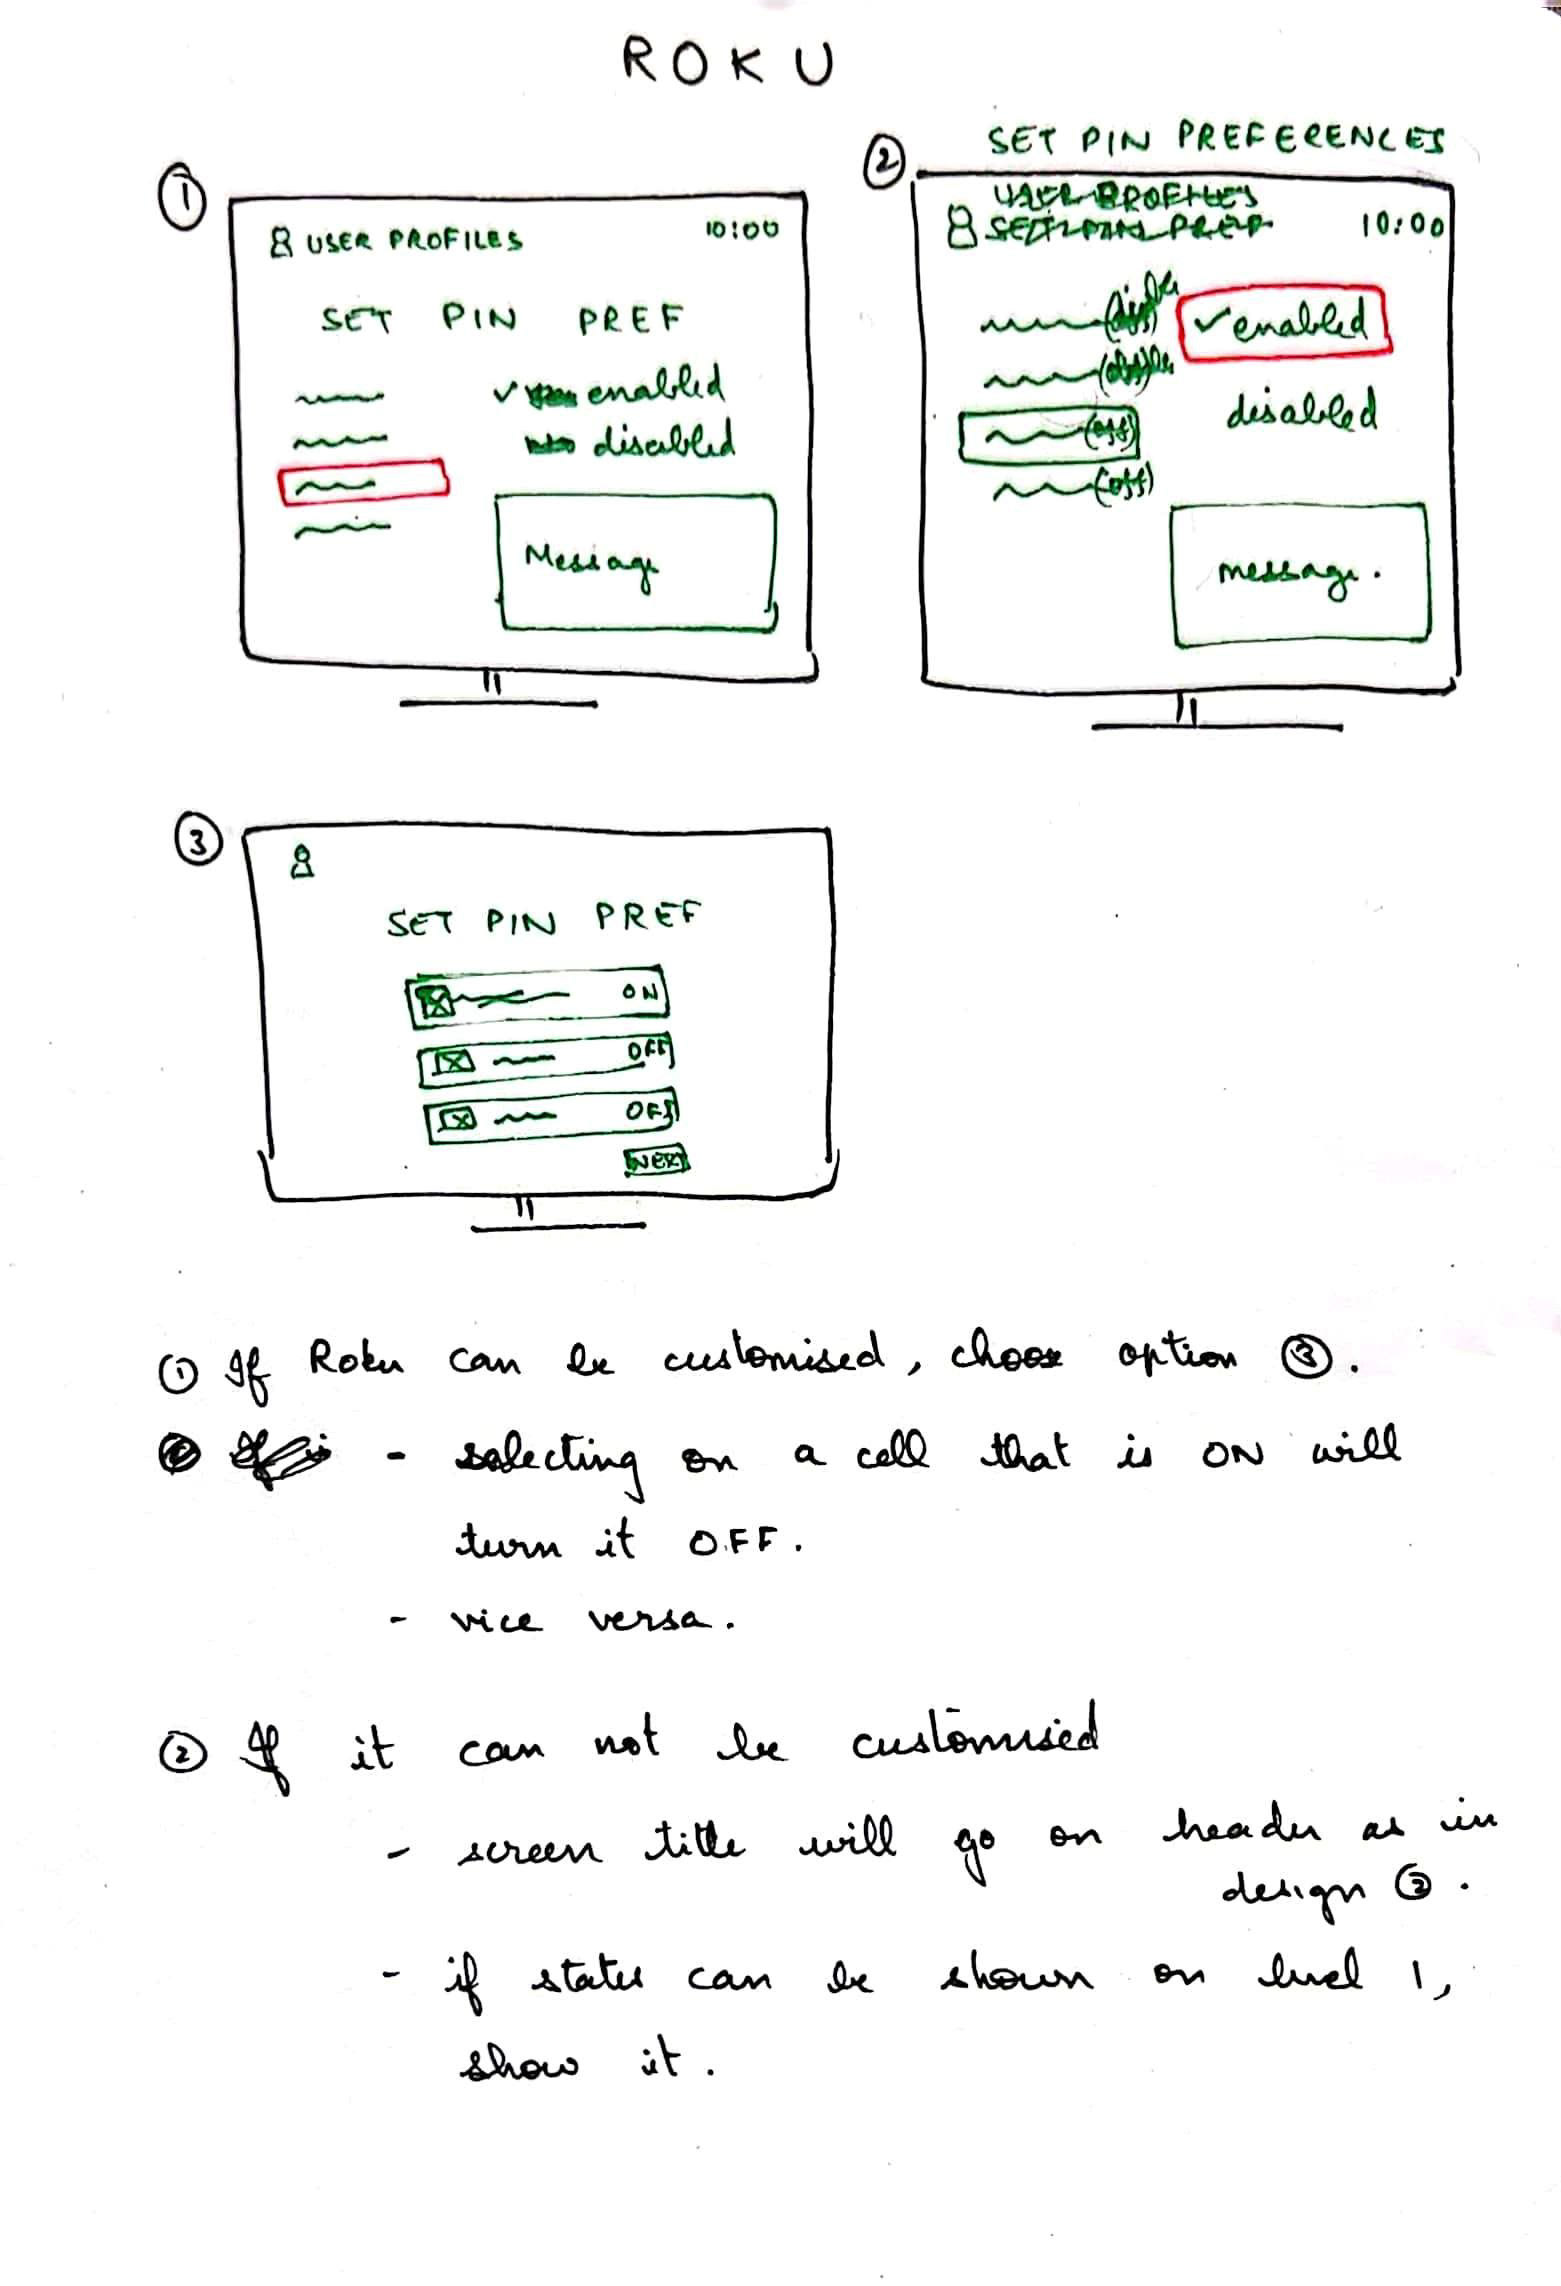 ROKU
①
USER PROFILES 10:00
SET PIN PREF
✓ enabled
disabled
Message
②
SET PIN PREFERENCES
USER PROFILES
SET PIN PREF 10:00
✓ enabled
disabled
(off)
(off)
message.
③
SET PIN PREF
ON
OFF
OFF
NEXT
① If Roku can be customised, choose option ③.
- selecting on a cell that is ON will
turn it OFF.
- vice versa.
② If it can not be customised
- screen title will go on header as in
design ②.
- if states can be shown on level 1,
show it.